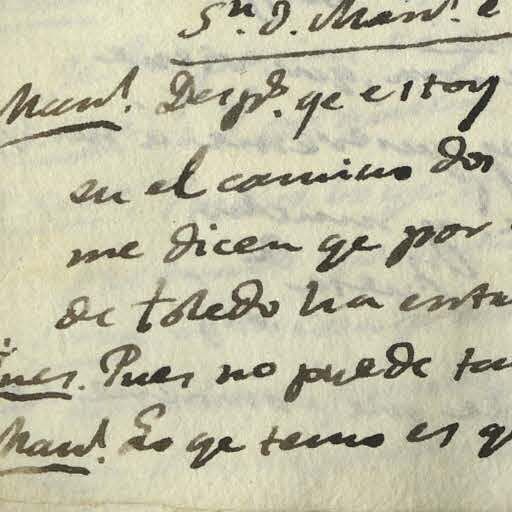 Sn. D. Manl. e
Manl. Desps. qe estoy
en el camino dos
me dicen qe por
de toledo ha entra
nes. Pues no puede ta
Manl. Lo qe temo es q